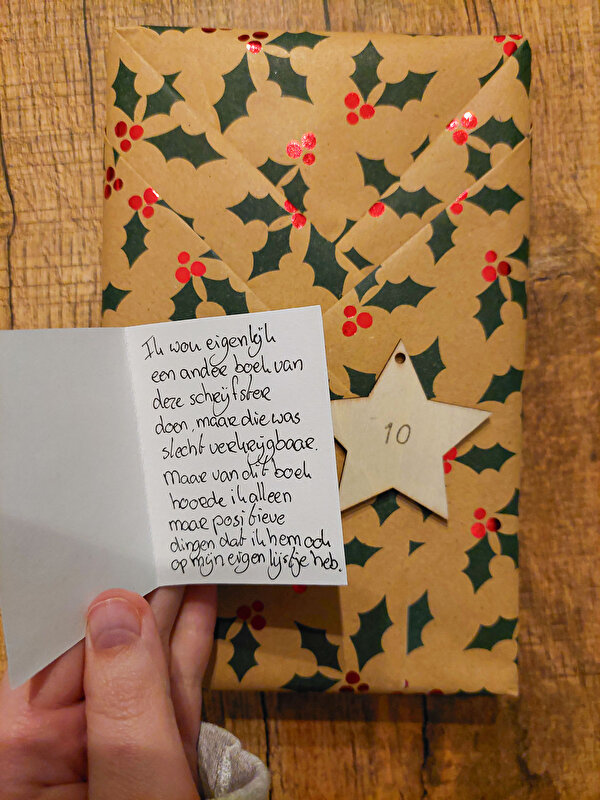 Ik wou eigenlijk
een ander boek van
deze schrijfster
doen, maar die was
slecht verkrijgbaar.
Maar van dit boek
hoorde ik alleen
maar positieve
dingen dat ik hem ook
op mijn eigen lijstje heb.
10